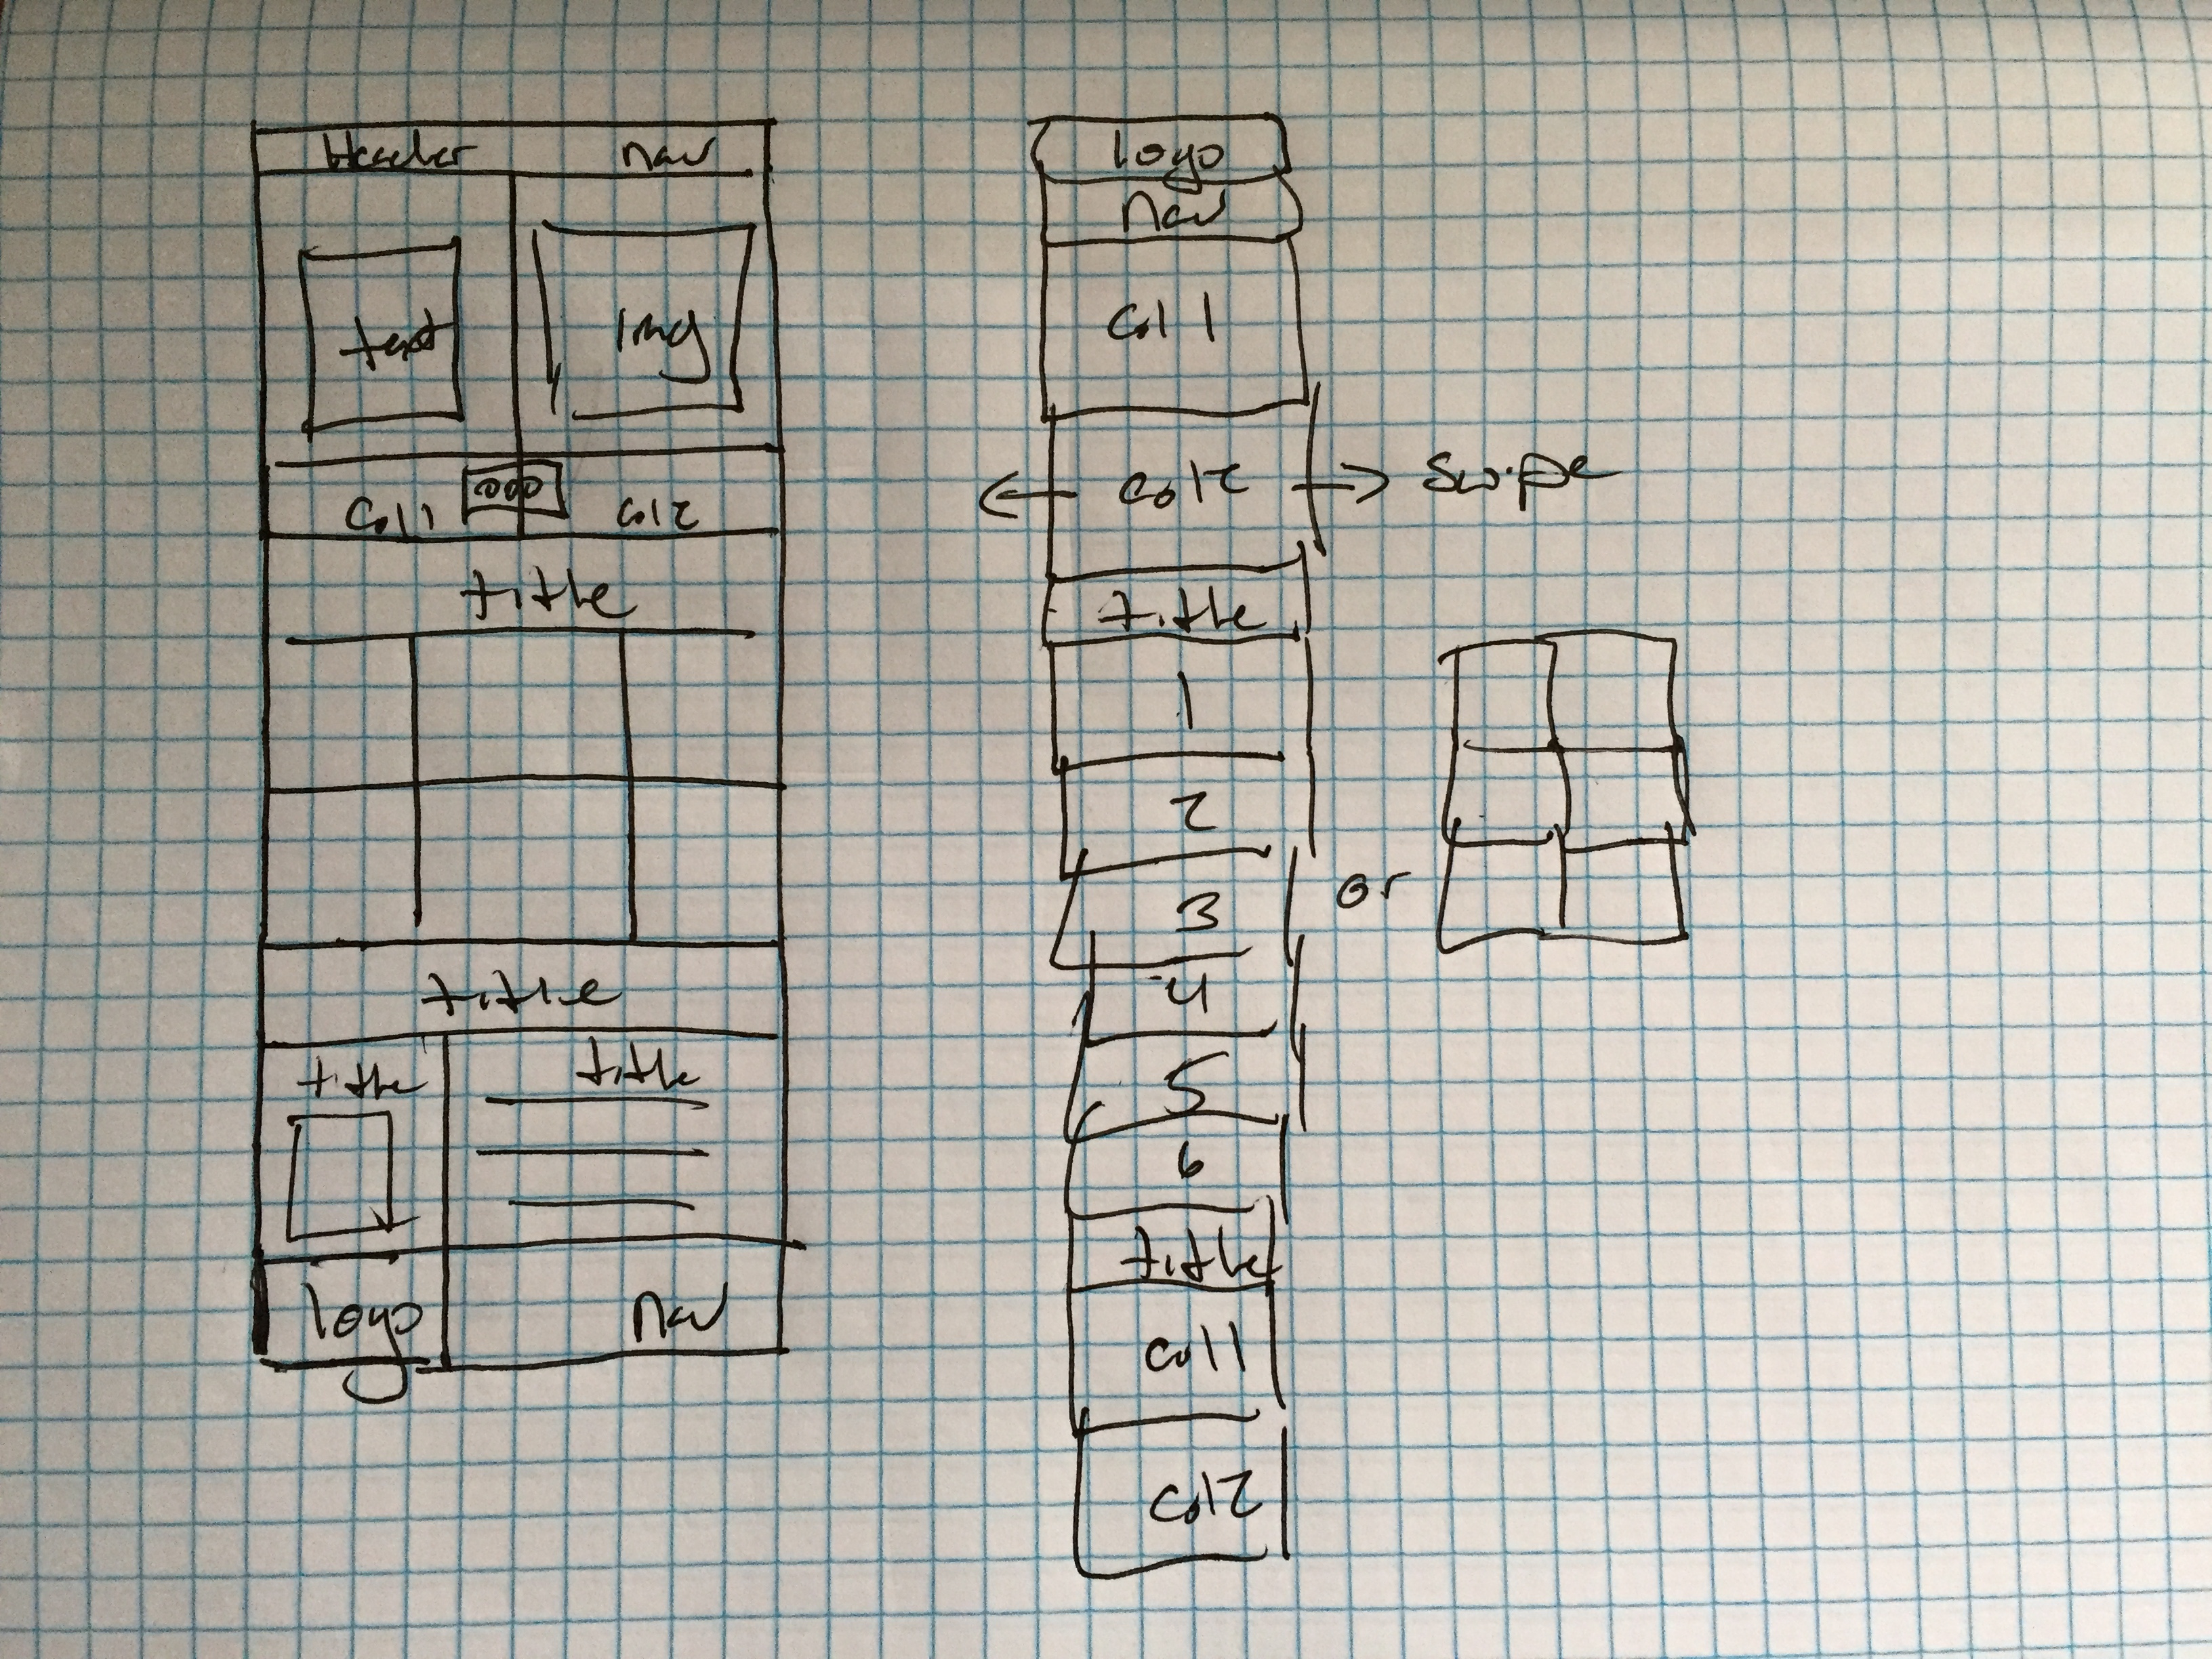 Header nav
text img
Col1 000 col2
title
title
title title
logo nav
logo
nav
col 1
col2 swipe
title
1
2
3 or
4
5
6
title
col1
col2